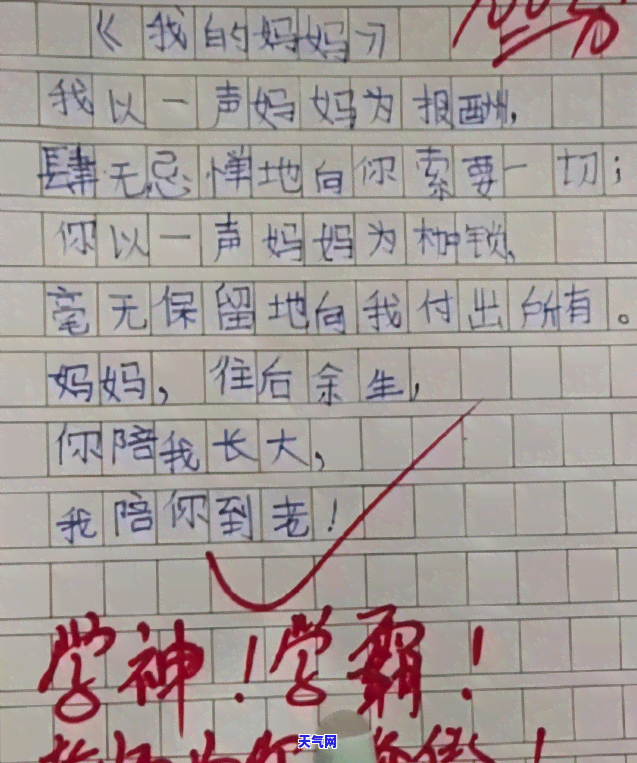 《我的妈妈》
我以一声妈妈为报酬，
肆无忌惮地向你索要一切；
你以一声妈妈为枷锁，
毫无保留地向我付出所有。
妈妈，往后余生，
你陪我长大，
我陪你到老！
学神！学霸！
天气网